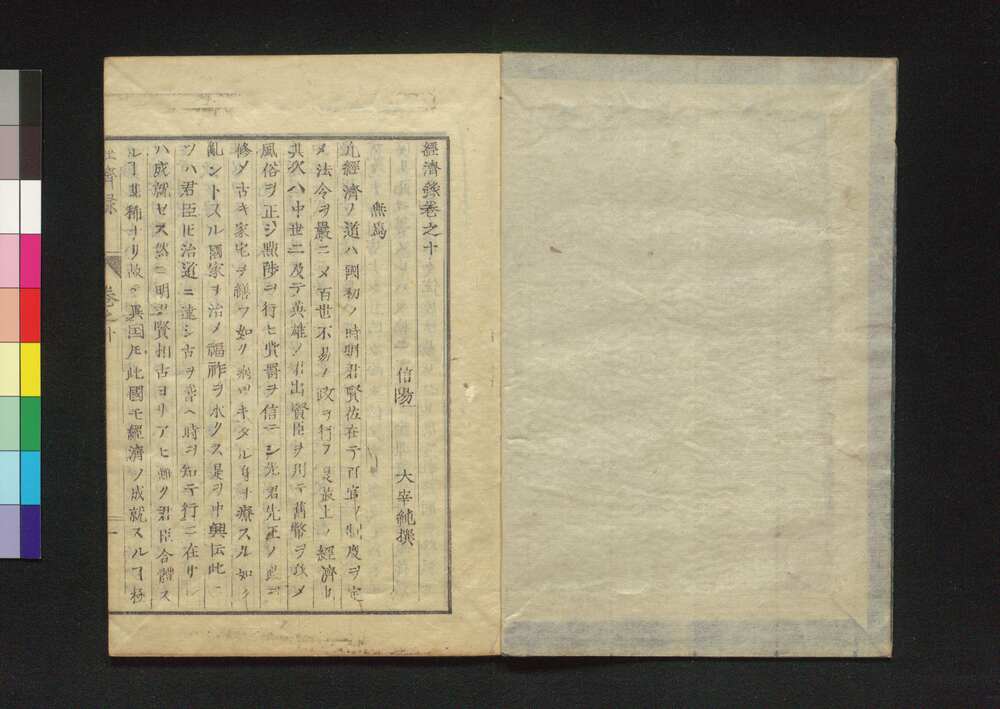 經濟錄卷之十
信陽 大宰純撰
無爲
凡經濟ノ道ハ國初ノ時明君賢佐在テ百官ノ制度ヲ定
メ法令ヲ嚴ニメ百世不易ノ政ヲ行フ是最上ノ經濟也
其次ハ中世ニ及テ英雄ノ君出賢臣ヲ用テ舊幣ヲ改メ
風俗ヲ正シ黜陟ヲ行ヒ賞罰ヲ信ニシ先君先王ノ
修メ古キ家宅ヲ繕フ如ク病ツキタル身ヲ療スル如ク
亂ントスル國家ヲ治メ福祚ヲ永クス是ヲ中興ト云此二
ツハ君臣圧治道ニ達シ古ヲ考ヘ時ヲ知テ行ニ在サレ
ハ成就セス然ニ明君賢相古ヨリアヒ難ク君臣合體ス
ルヿ甚稀ナリ故ニ異国ニモ此國モ經濟ノ成就スルヿ極
經濟錄 卷之十 一